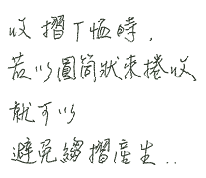 收摺T恤時,
若以圓筒狀來捲收,
就可以
避免縐摺產生..